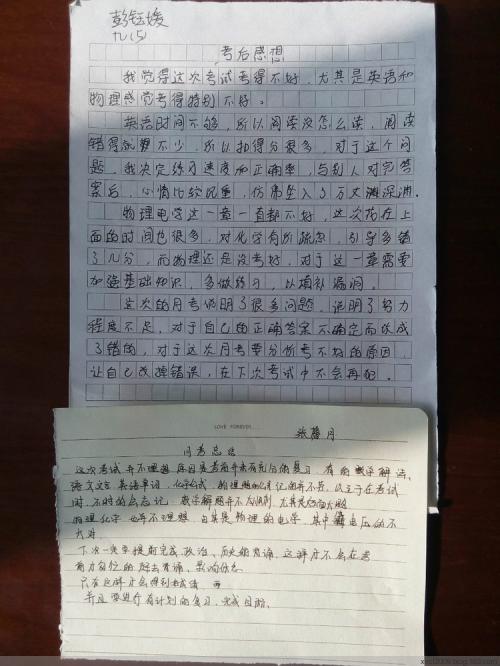 彭钰媛
九(5)
考后感想
我觉得这次考试考得不好,尤其是英语和
物理感觉考得特别不好。
英语时间不够,所以阅读没怎么读,阅读
错得就不少,所以扣得分很多,对于这个问
题,我决定练习速度和正确率,与别人对完答
案后,心情比较沉重,仿佛坠入了万丈深渊。
物理电学这一章一直都不好,这次花在上
面的时间也很多,对化学有所疏忽,引导多错
了几分,而物理还是没考好,对于这一章需要
加强基础知识,多做练习,以填补漏洞。
这次的月考说明了很多问题,说明了努力
程度不足,对于自己的正确答案不确定而改成
了错的,对于这次月考要分析考不好的原因,
让自己改掉错误,在下次考试中不会再犯。
LOVE FOREVER
张 月
月考总结
这次考试并不理想 原因是考前并未有充分的复习 有的数学解法、
语文文言 英语单词、化学公式、物理 记的并不牢,以至于在考试
时,不时的会忘记,数学解题并不 尤其是
物理化学 也并不理想 尤其是物理的电学 其中 电压的不
太对
下次一定要提前完成政治、历史的背诵,这样才不会在考
前 的赶去背诵、影响休息
只有这样才会得到好成绩
并且要进行有计划的复习,完成目标。